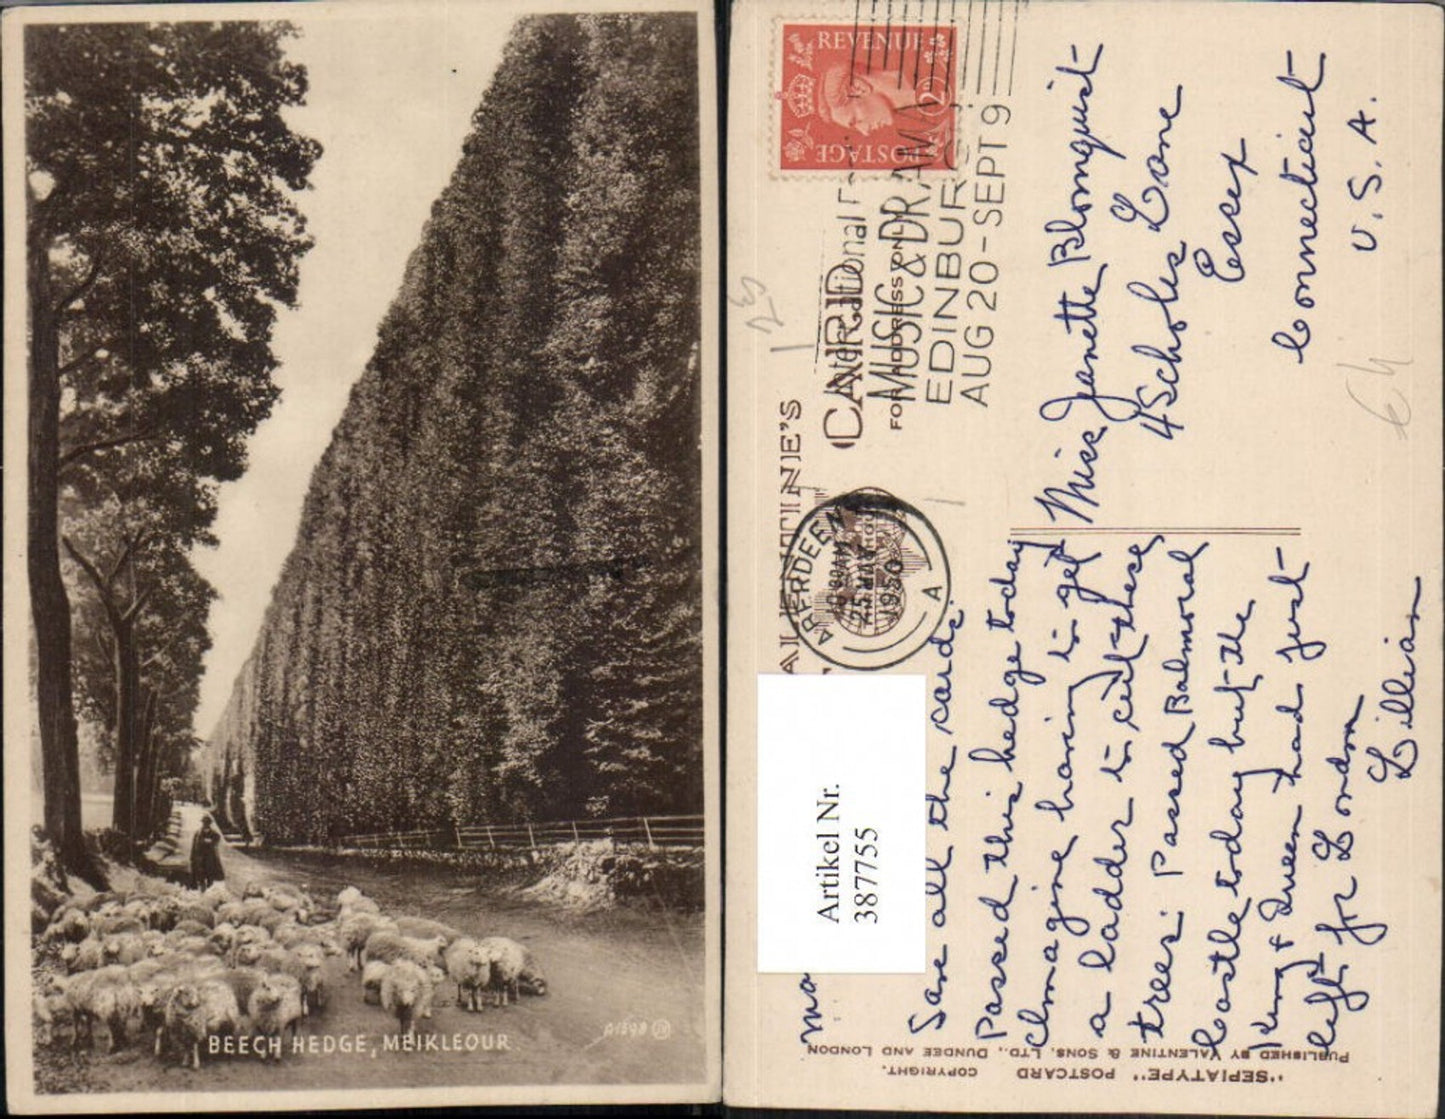 BEECH HEDGE, MEIKLEOUR
A1848 JV
REVENUE
POSTAGE
MUSIC & DRAMA
EDINBURGH
AUG 20-SEPT 9
CARD
FOR ADDRESS ONLY
VALENTINE'S
ABERDEEN
1950
A
Artikel Nr.
387755
Save all the cards.
Passed this hedge today
Imagine having to get
a ladder to cut these
trees. Passed Balmoral
Castle today but the
King & Queen had just
left for London
Lillian
Miss Janette Blomquist
4 Scholes Lane
Essex
Connecticut
U.S.A.
"SEPIATYPE" POSTCARD COPYRIGHT.
PUBLISHED BY VALENTINE & SONS, LTD., DUNDEE AND LONDON